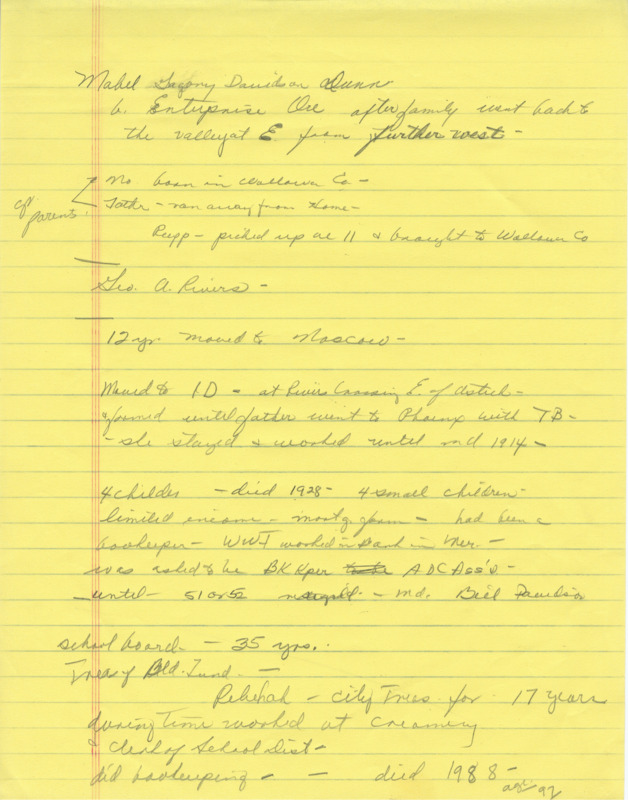 Mabel Davidson Dunn
b. Enterprise Ore after family went back to
the valley at E from further west -
cf parents.
Mo born in Wallowa Co -
Father - ran away from Home -
Rupp - picked up at 11 & brought to Wallowa Co
Geo. A. Rivers -
12 yr moved to Moscow -
Moved to ID - at Rivers Crossing E. of
& farmed until father went to Phoenix with TB -
- she stayed & worked until md 1914 -
4 childer - died 1928 - 4 small children -
limited income - mortg. farm - had been a
bookeeper - WWI worked in bank in Mer. -
was asked to be BKKper ADC
until - 51 or 52 - md. Bill Davidson
school board - 35 yrs.
Treas of Bld. Fund. -
Rebekah - city Treas for 17 years
during time worked at creamery
& clerk of School Dist -
did bookeeping - - died 1988 -
age 92